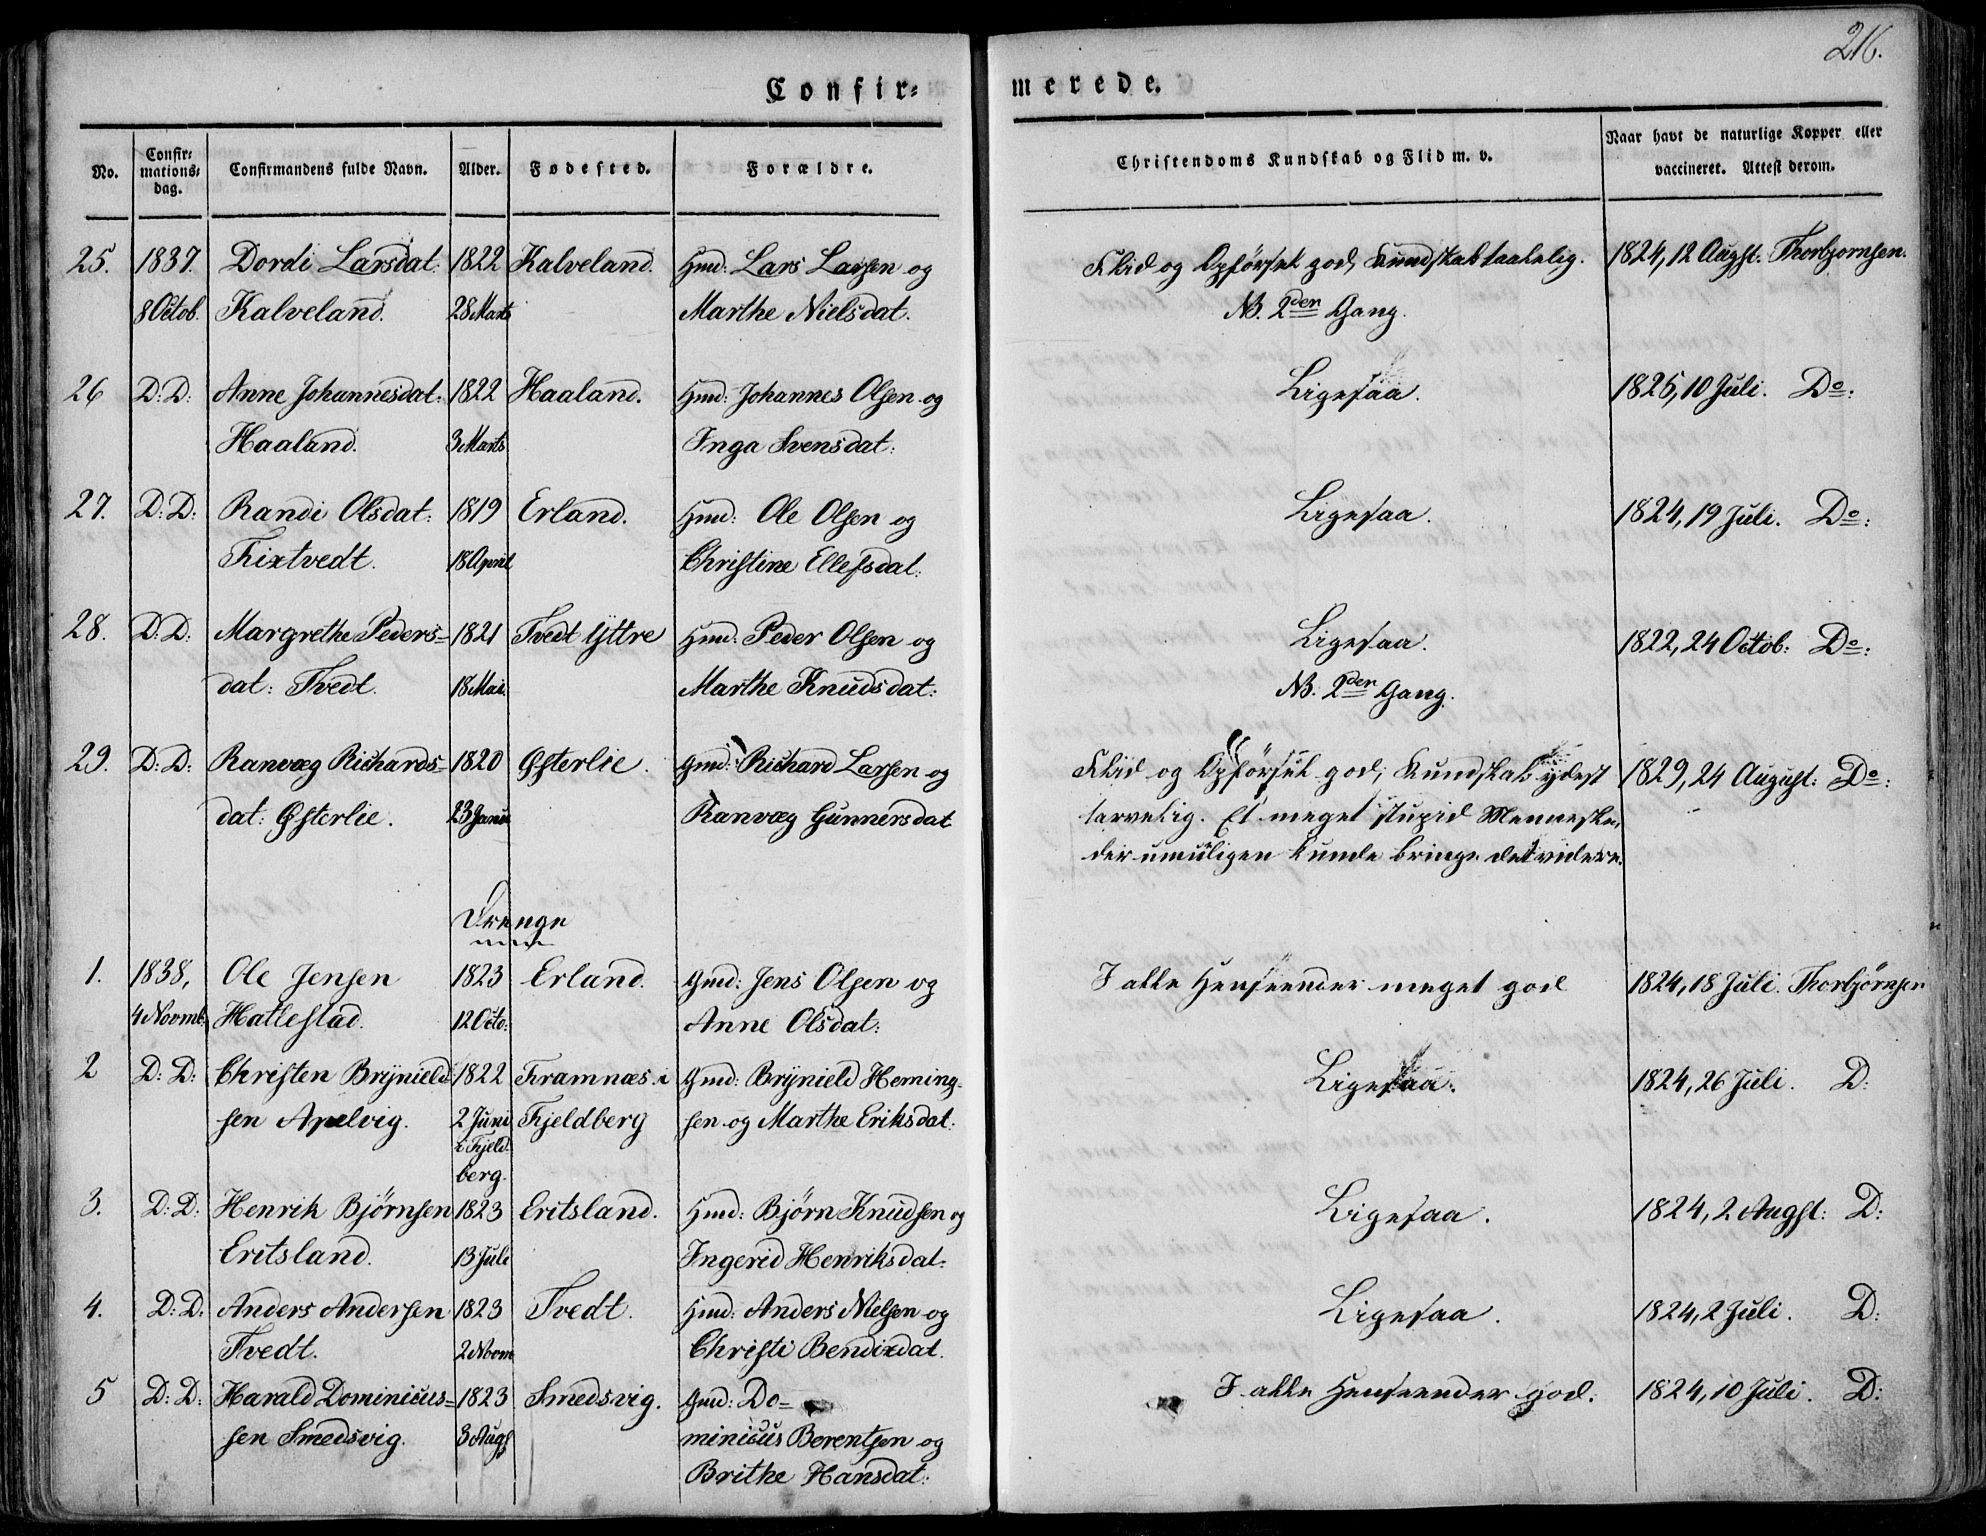 216.
Confir=
merede.
No.
Confir=
mations=
dag.
Confirmandens fulde Navn.
Alder.
Fødested.
Forældre.
Christendoms Kundskab og Flid m. v.
Naar havt de naturlige Kopper eller
vaccineret. Attest derom.
25. 1837. Dordi Larsdat: 1822 Kalveland. Gmd: Lars Larsen og Flid og Opførsel god, Kundskab taalelig. 1824, 12 Augst. Thorbjørnsen.
8 Octob. Kalveland. 28 Marts Marthe Nielsdat. NB. 2den Gang.
26 D: D: Anne Johannesdat: 1822 Haaland. Hmd: Johannes Olsen og Ligesaa. 1825, 10 Juli. Do:
Haaland. 3 Marts Inga Svensdat:
27. D: D: Randi Olsdat: 1819 Erland. Hmd: Ole Olsen og Ligesaa. 1824, 19 Juli. Do:
Tixtvedt. 18 April Christine Ellefsdat:
28. D: D: Margrethe Peders= 1821 Tvedt Yttre Hmd: Peder Olsen og Ligesaa. 1822, 24 Octob: Do:
dat: Tvedt. 18 Mai Marthe Knudsdat: NB. 2den Gang.
29. D: D: Ranvæg Richards= 1820 Østerlie. Gmd: Richard Larsen og Flid og Opførsel god; Kundskab ydest 1829, 24 August: Do:
dat: Østerlie. 23 Janu Ranvæg Gunnersdat tarvelig. Et meget stupid Menneske,
der umuligen kunde bringe det videre.
Drenge
1. 1838, Ole Jensen 1823 Erland. Gmd: Jens Olsen og I alle Henseender meget god 1824, 18 Juli. Thorbjørnsen
4 Novmb: Hatlestad. 12 Octo: Anne Olsdat:
2 D: D: Christen Brynield 1822 Framnæs i Gmd: Brynield Heming- Ligesaa. 1824, 26 Juli. D:
sen Apelvig. 2 Juni Fjeldberg sen og Marthe Eriksdat:
i Fjeld-
berg.
3. D: D: Henrik Bjørnsen 1823 Eritsland. Hmd: Bjørn Knudsen og Ligesaa. 1824, 2 Augst: D:
Eritsland. 13 Juli Ingerid Henriksdat:
4. D: D: Anders Andersen 1823 Tvedt. Hmd: Anders Nielsen og Ligesaa. 1824, 2 Juli. D:
Tvedt. 2 Novm Christi Bendixdat.
5 D: D: Harald Dominicus= 1823 Smedsvig. Gmd: Do= I alle Henseender god. 1824, 10 Juli. D:
sen Smedsvig. 3 Augs minicus Berentsen og
Brithe Hansdat: